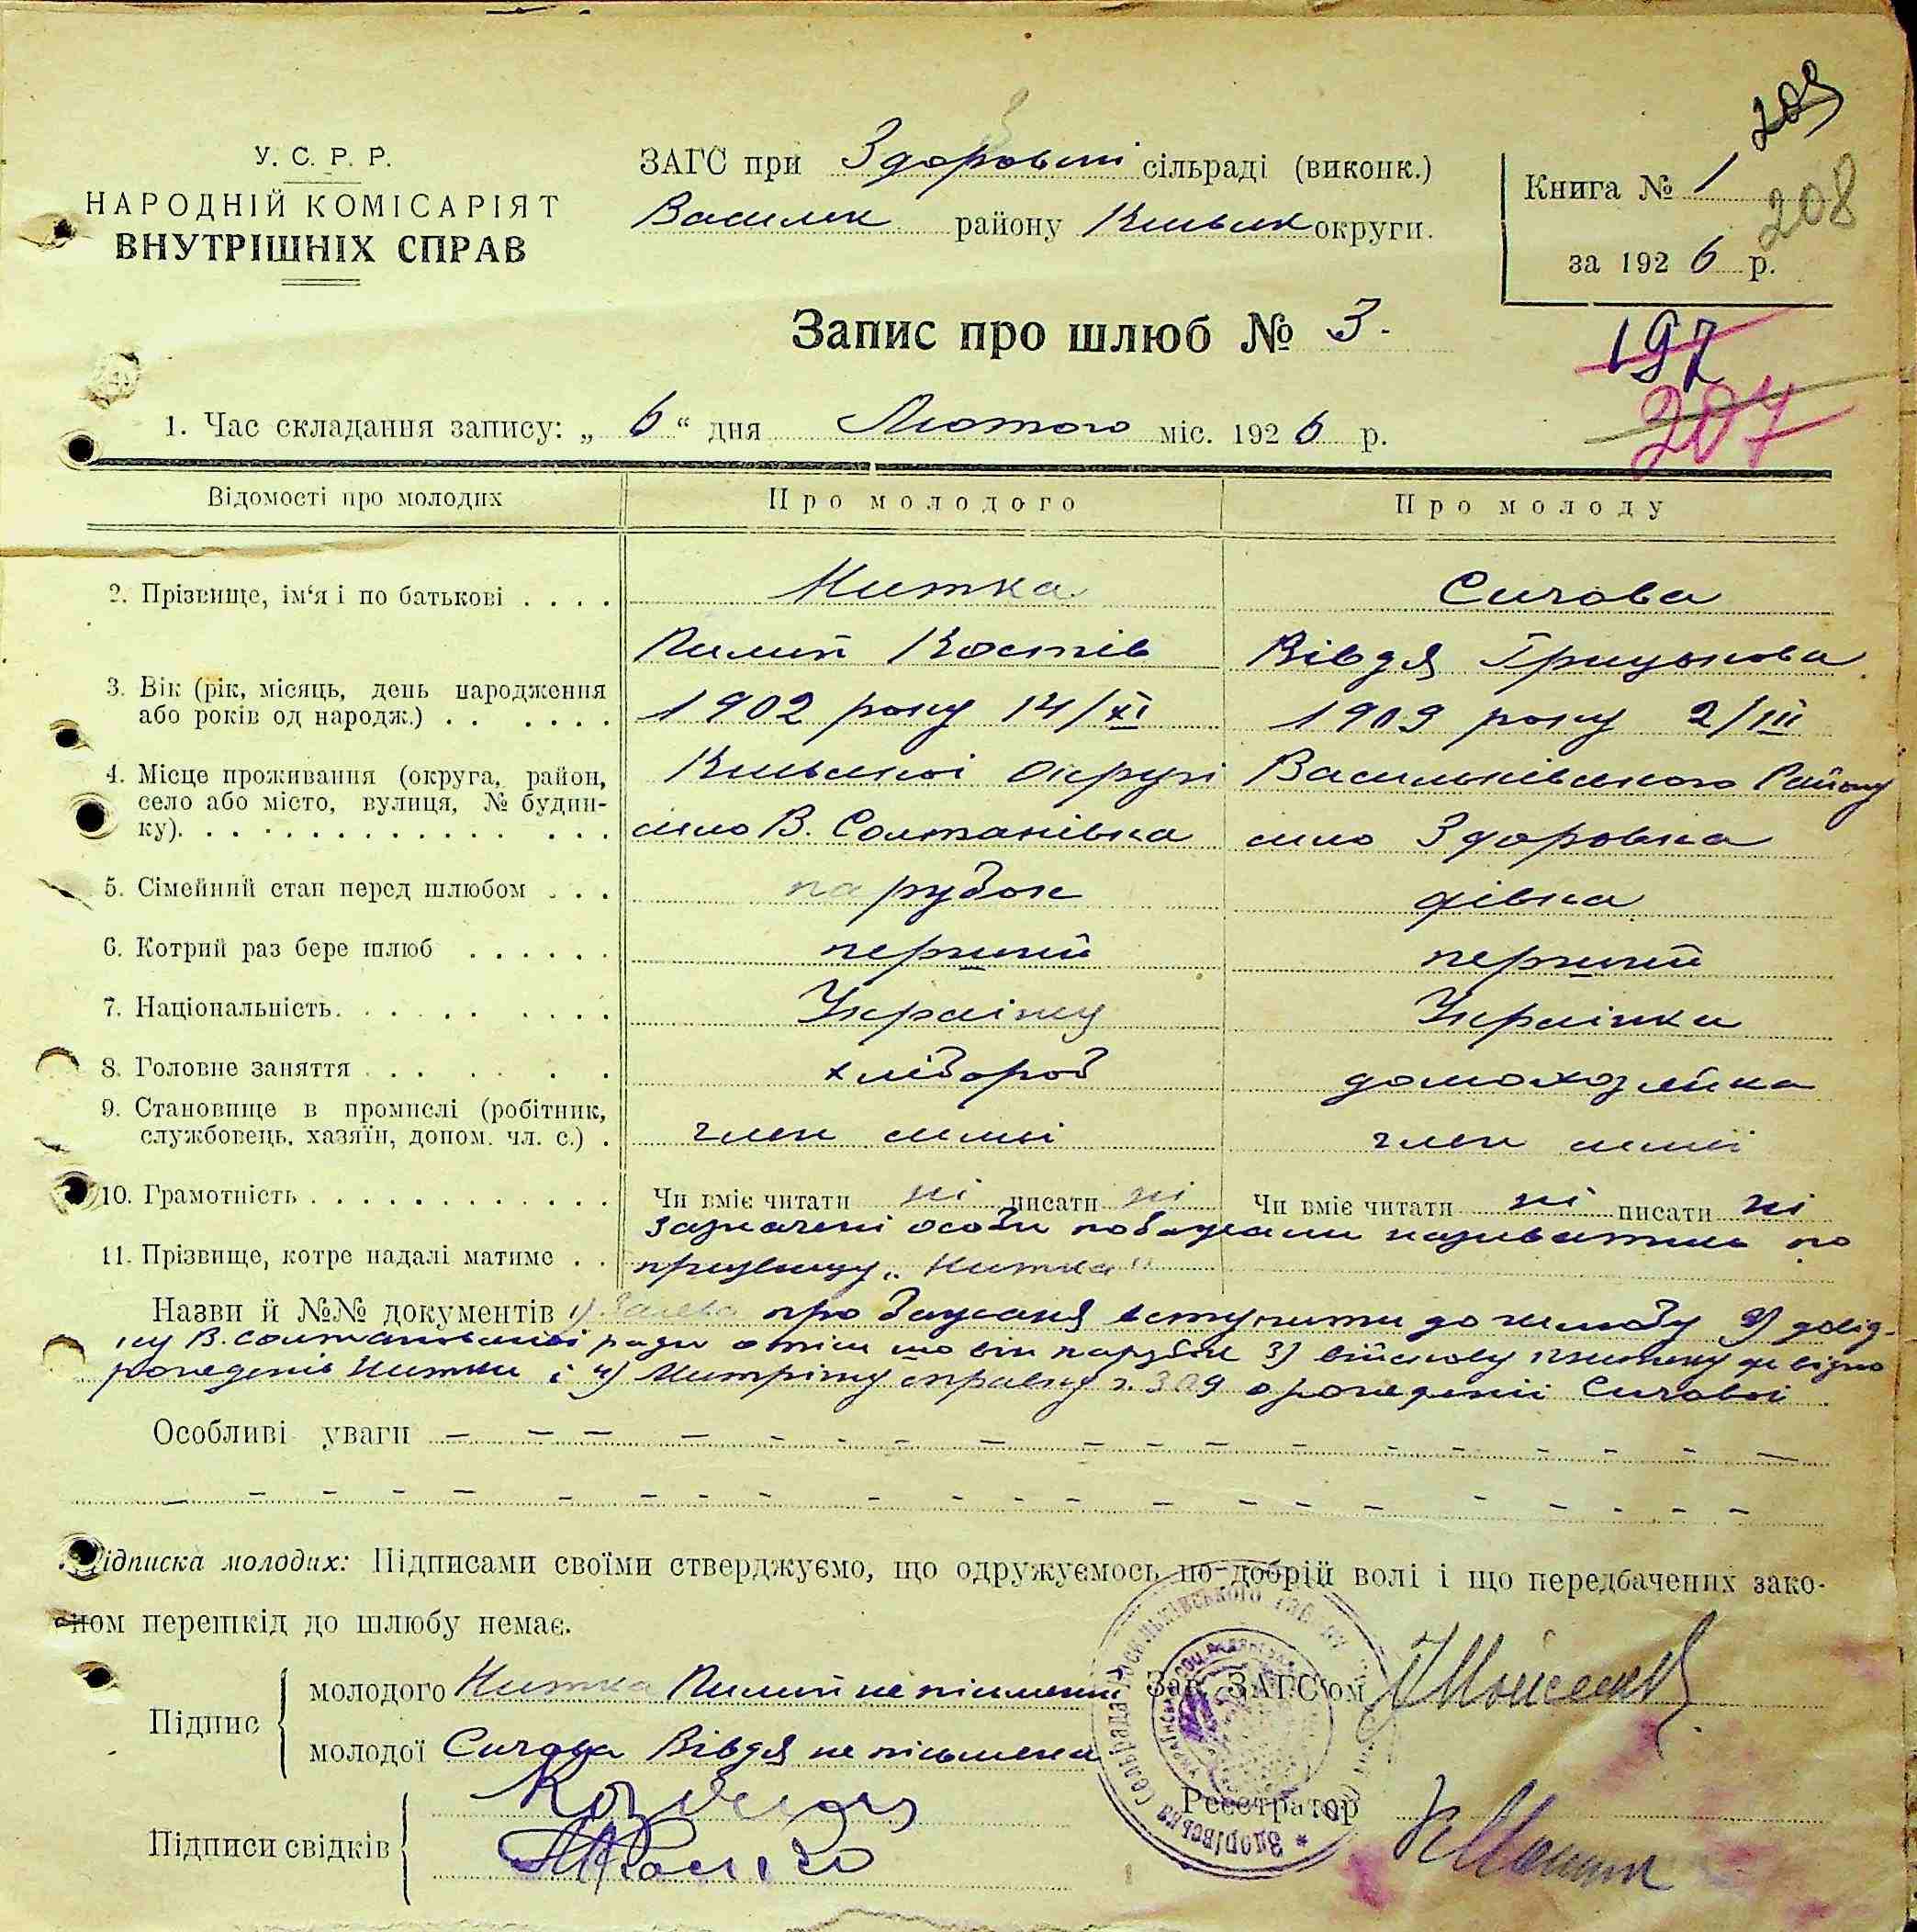 209
У. С. Р. Р.
НАРОДНІЙ КОМІСАРІЯТ
ВНУТРІШНІХ СПРАВ
ЗАГС при Здоровській сільраді (виконк.)
Васильк району Київськ округи.
Книга № 1
208
за 1926 р.
Запис про шлюб № 3.
197
207
1. Час складання запису: „6“ дня Лютого міс. 1926 р.
Відомості про молодих
Про молодого
Про молоду
2. Прізвище, ім‘я і по батькові . . . .
Нитка
Сичова
Пилип Костів
Вівдя Грицькова
3. Вік (рік, місяць, день народження
або років од народж.) . . . . . .
1902 року 14/XI
1909 року 2/III
4. Місце проживання (округа, район,
село або місто, вулиця, № будин-
ку). . . . . . . . . . . . . . . .
Київської Округі
село В. Солтанівка
Васильківського Району
село Здоровка
5. Сімейний стан перед шлюбом . . .
парубок
дівка
6. Котрий раз бере шлюб . . . . . .
перший
перший
7. Національність. . . . . . . . . .
Українец
Українка
8. Головне заняття . . . . . . .
хлібороб
домохозяйка
9. Становище в промислі (робітник,
службовець, хазяїн, допом. чл. с.) .
член семьї
член семьї
10. Грамотність . . . . . . . . . . . . .
Чи вміє читати ні писати ні
Чи вміє читати ні писати ні
11. Прізвище, котре надалі матиме . .
Зазначені особи побажали називатись по
призвищу „Нитка“
Назви й №№ документів 1) Заява про бажаня вступити до шлюбу 2) довід-
ку В. Солтановської ради о тім що він парубок 3) війскову
рожденія Нитки і 4) Метричну справку з. 309 о рождениі Сичової
Особливі уваги – – – – – – – – – – – – – – – –
– – – – – – – – – – – – – – – – – – – –
Підписка молодих: Підписами своїми стверджуємо, що одружуємось по-добрій волі і що передбачених зако-
ном перешкід до шлюбу немає.
Підпис
молодого Нитка Пилип не письмений
молодої Сичова Вівдя не письмена
Зав. ЗАГС‘ом
Реєстратор
Підписи свідків
* Здорівська Сельрада Васильківського району